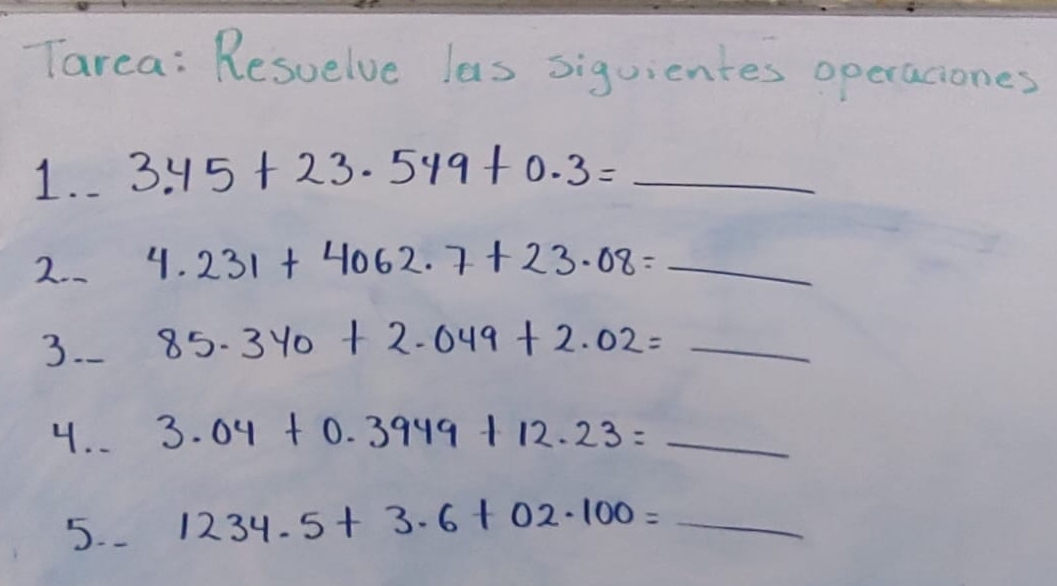 Tarea: Resuelve las siguientes operaciones
1.- 3.45 + 23.549 + 0.3 = ______
2.- 4.231 + 4062.7 + 23.08 = ______
3.- 85.340 + 2.049 + 2.02 = ______
4.- 3.04 + 0.3949 + 12.23 = ______
5.- 1234.5 + 3.6 + 02.100 = ______